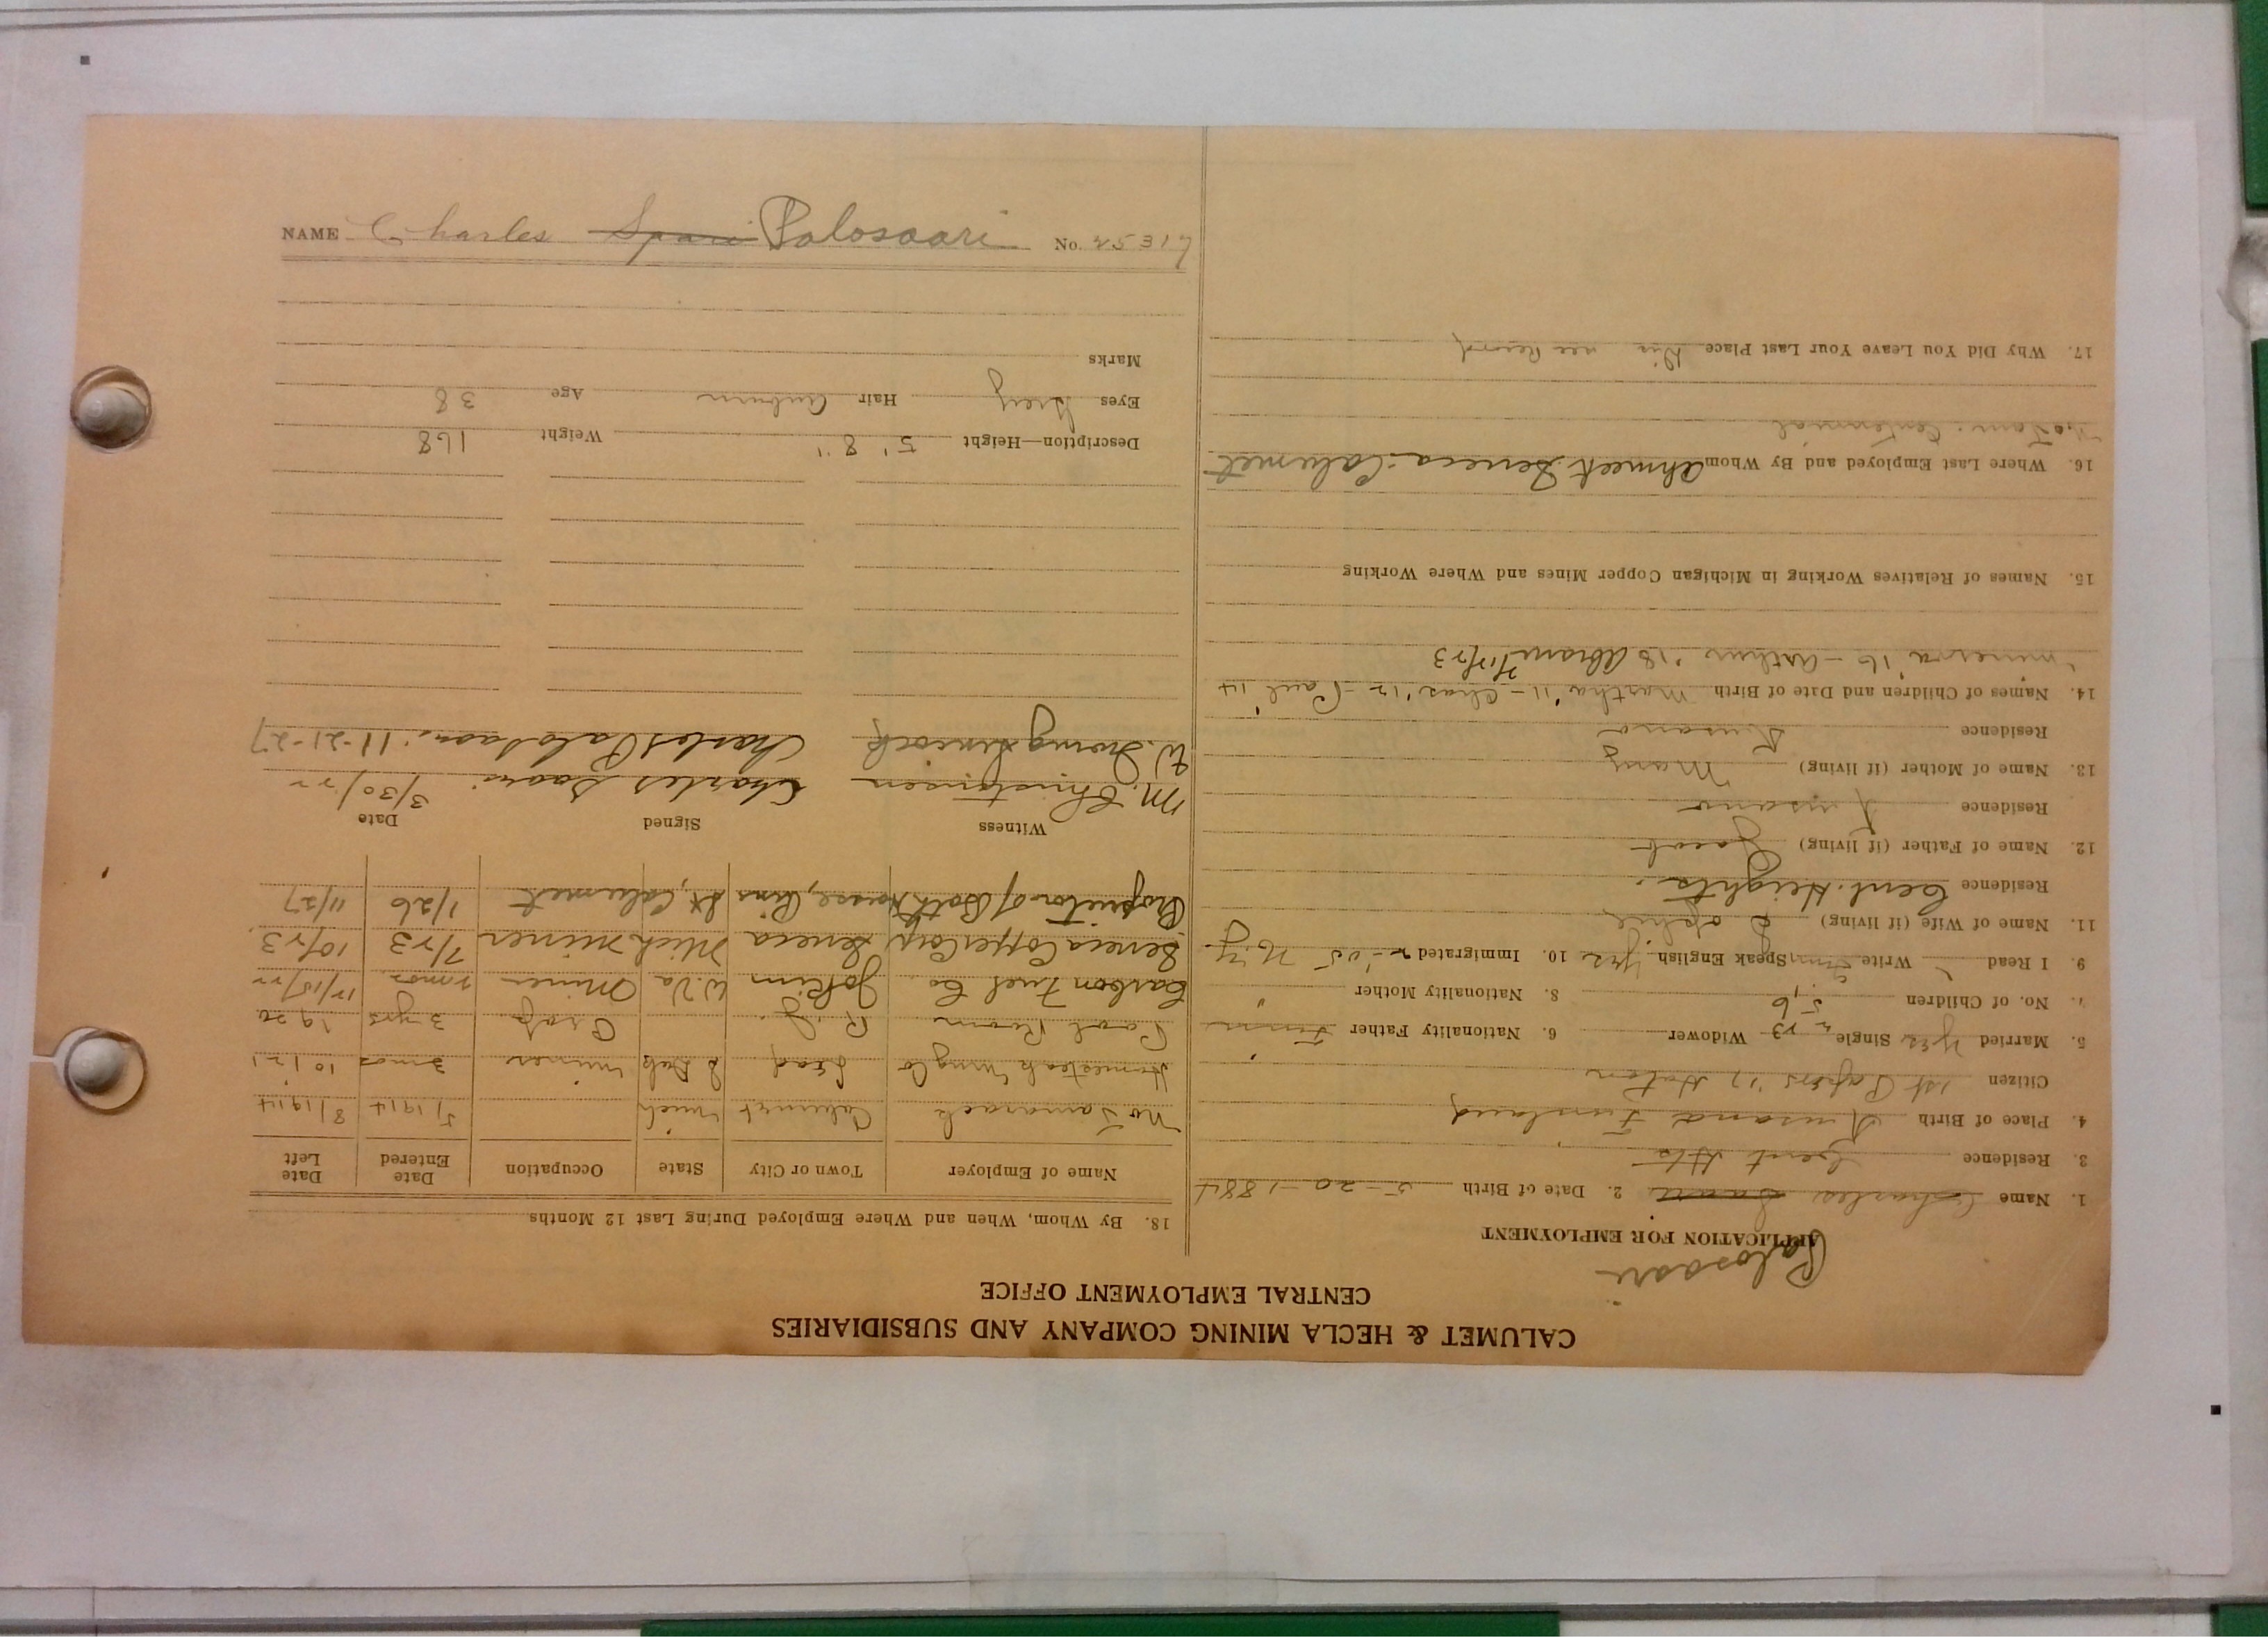 CALUMET & HECLA MINING COMPANY AND SUBSIDIARIES
CENTRAL EMPLOYMENT OFFICE
Palosaari
APPLICATION FOR EMPLOYMENT
1. Name Charles Saari 2. Date of Birth 5-20-1884
3. Residence Cent Hts
4. Place of Birth Kusamo Finland
Citizen 1st Papers '17
5. Married yes Single Widower 6. Nationality Father Finn
7. No. of Children 5, 6 8. Nationality Mother "
9. I Read Write Finn Speak English yes 10. Immigrated '05 N.Y.
11. Name of Wife (if living) Sophie
Residence Cent. Heights.
12. Name of Father (if living) Jacob
Residence Kusamo
13. Name of Mother (if living) Mary
Residence Kusamo
14. Names of Children and Date of Birth Martha '11 - Chas '12 - Paul '14
Minerva '16 - Arthur '18 Abram
15. Names of Relatives Working in Michigan Copper Mines and Where Working
16. Where Last Employed and By Whom Ahmeek-Seneca-Calumet
No Tam: Centennial
17. Why Did You Leave Your Last Place Dis see Record
18. By Whom, When and Where Employed During Last 12 Months
Name of Employer Town or City State Occupation Date Entered Date Left
No. Tamarack Calumet Mich 5/1914 8/1914
Homestead Mng Co Lead S Dak miner 3 mos 10/21
Pool Room R.J. Prop. 3 yrs 1920
Carbon Fuel Co. W.Va Miner 2 mos 12/15/22
Seneca Copper Corp Seneca Mich Miner 7/23 10/23
Proprietor of Bath House, Pine St, Calumet 1/26 11/27
Witness Signed Date
M. Christensen Charles Saari 3/30/22
W. Irving Charles Palosaari 11-21-27
Description—Height 5' 8" Weight 168
Eyes Grey Hair Auburn Age 38
Marks
NAME Charles Saari Palosaari No. 25317